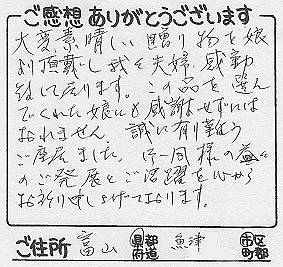 ご感想ありがとうございます
大変素晴しい贈り物を娘
より頂戴し我々夫婦感動
致して居ります。この品を選ん
でくれた娘にも感謝せずには
おれません。誠に有難う
ご座居ました。御一同様の益々
のご発展とご活躍を心から
お祈り申し上げております。
ご住所 富山 県都府道 魚津 市区町郡